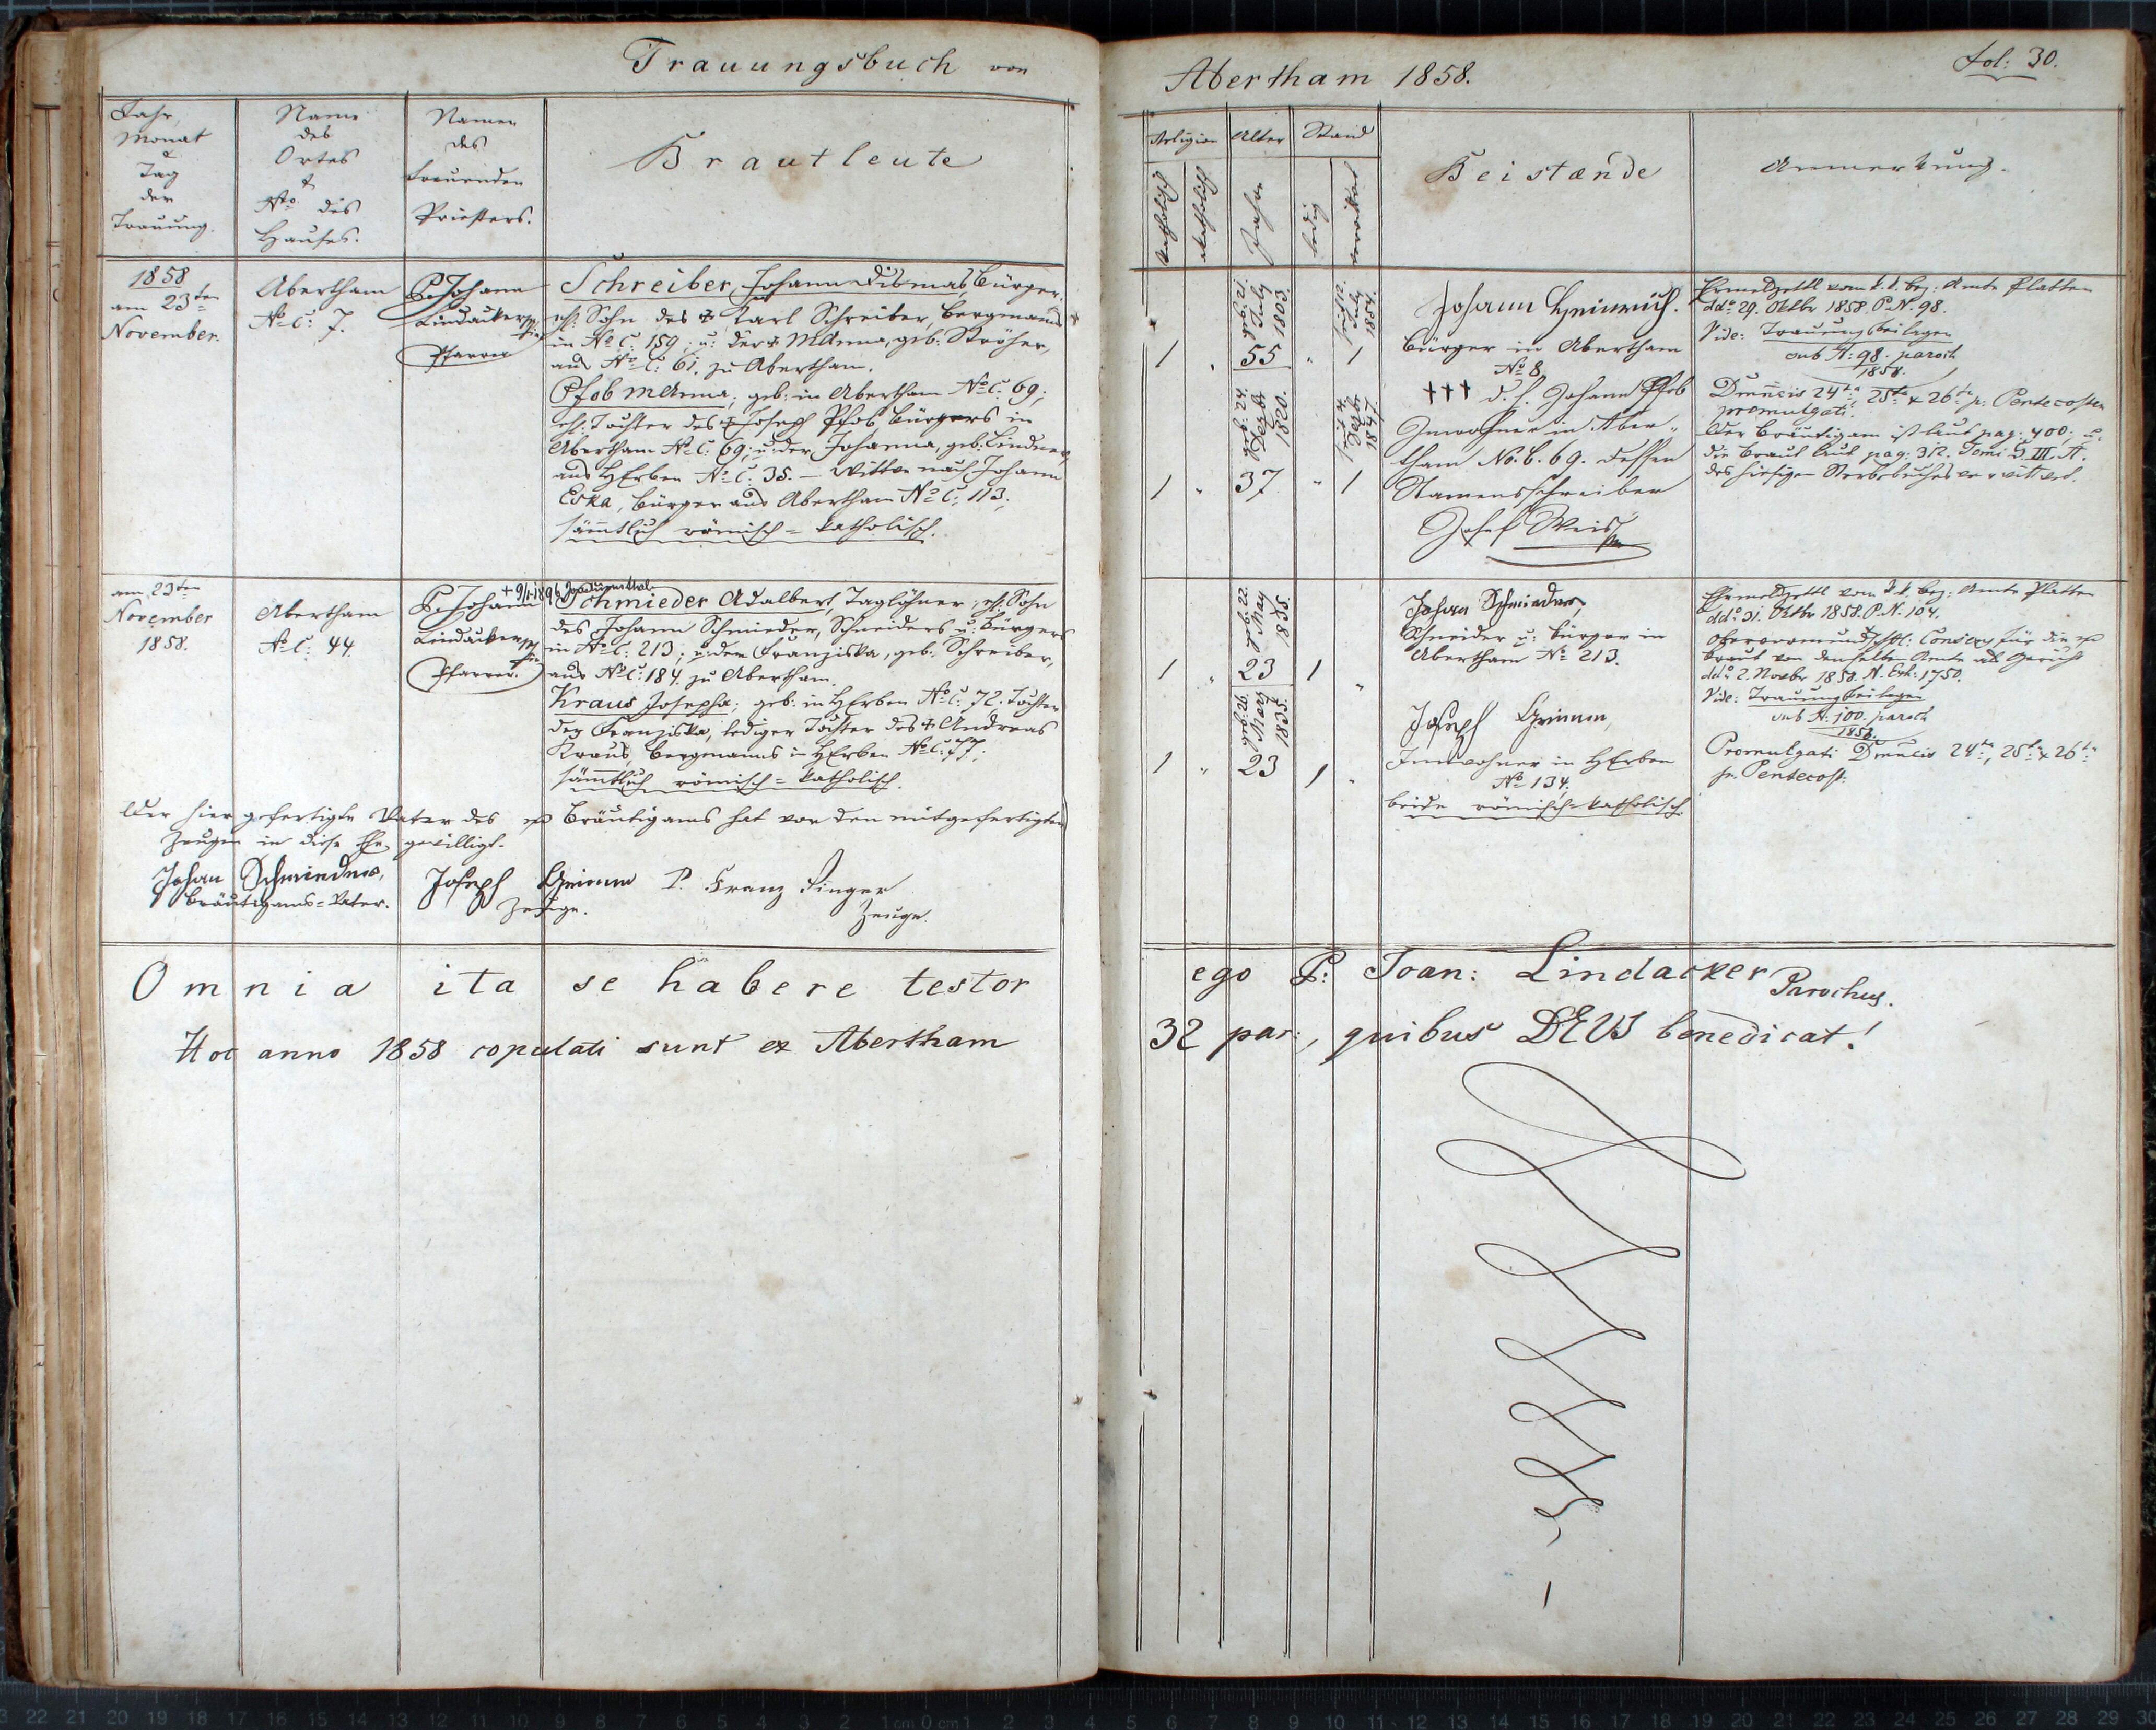 Trauungsbuch von
Jahr,
Monat
&
Tag
der
Trauung.
Name
des
Ortes
&
Nro des
Hauses.
Namen
des
trauenden
Priesters.
Brautleute
1858
am 23ten
November.
Abertham
No C: 7.
P. Johann
Lindacker
Pfarrer
Schreiber, Johann Dismas, Bürger,
eh: Sohn des † Karl Schreiber, Bergmanns
in No C: 159; u: der † MAnna, geb: Ströher,
aus No C: 61. zu Abertham.
Pfob MAnna; geb: in Abertham No C: 69;
eh: Tochter des † Joseph Pfob, Bürgers in
Abertham No C: 69; u: der Johanna, geb. Lindner,
aus HErben No C: 35. — Wittwe nach Johann
Eska, Bürger aus Abertham No C: 113.
sämtlich römisch=katholisch.
am 23ten
November
1858.
Abertham
No C: 44.
P. Johann
Lindacker
Pfarrer.
+ 9/1 1896 Joachimsthal
Schmieder Adalbert, Taglöhner, eh: Sohn
des Johann Schmieder, Schneiders u: Bürgers
in No C: 213; u: der Franziska, geb: Schreiber,
aus No C: 184. zu Abertham.
Kraus Josepha; geb: in HErben No C: 72. Tochter
der Franziska, lediger Tochter des † Andreas
Kraus, Bergmanns in HErben No C: 77;
sämtlich römisch=katholisch.
Der hier gefertigte Vater des Bräutigams hat vor den mitgefertigten
Zeugen in diese Ehe gewilligt.
Johan Schmieder,
Bräutigams=Vater.
Joseph Grimm
Zeuge.
P. Franz Singer
Zeuge.
Omnia ita se habere testor
Hoc anno 1858 copulati sunt ex Abertham
Abertham 1858.
fol: 30.
Religion
Alter
Stand
katholisch
Jahre
ledig
verwitwet
Beistænde
Anmerkung.
1 " 55 " 1
geb. 21. July 1803.
July 1854.
1 " 37 " 1
geb. 24. Dezbr 1820.
Dezbr 1847.
Johann Heinrich.
Bürger in Abertham
No 8
††† d. h. Johann Pfob
Inwohner in Aber-
tham No. C. 69. dessen
Namensschreiber
Josef Weis
Ehemeldzettl vom k. k. bez: Amte Platten
ddo 29. Oktbr 1858. P. N. 98.
Vide: Trauungsbeilagen
sub N: 98. paroch
1858.
Dnncis 24ta 25ta & 26ta p: Pentecosten
promulgati.
Der Bräutigam ist laut pag: 400; u.
die Braut laut pag: 312. Tomi III. A.
des hiesigen Sterbebuches verwittwet.
1 " 23 1 "
geb. 22. May 1835.
1 " 23 1 "
geb. 26. 1835.
Johan Schmieder,
Schneider u: Bürger in
Abertham No 213.
Joseph Grimm,
Inwohner in HErben
No 134,
beide römisch=katholisch.
Ehemeldzettl vom k. k. bez: Amte Platten
ddo 31. Oktbr 1858. P. N. 104.
Obervormundschftl: Consens für die
Braut von demselben Amte als Gericht
ddo 2. Novbr 1858. N. Exh: 1750.
Vide: Trauungsbeilagen
sub N: 100. paroch
1858.
Promulgati Dnncis 24ta, 25ta & 26ta
p. Pentecost:
ego P: Joan: Lindacker Parochus.
32 par:, quibus DEUS benedicat!